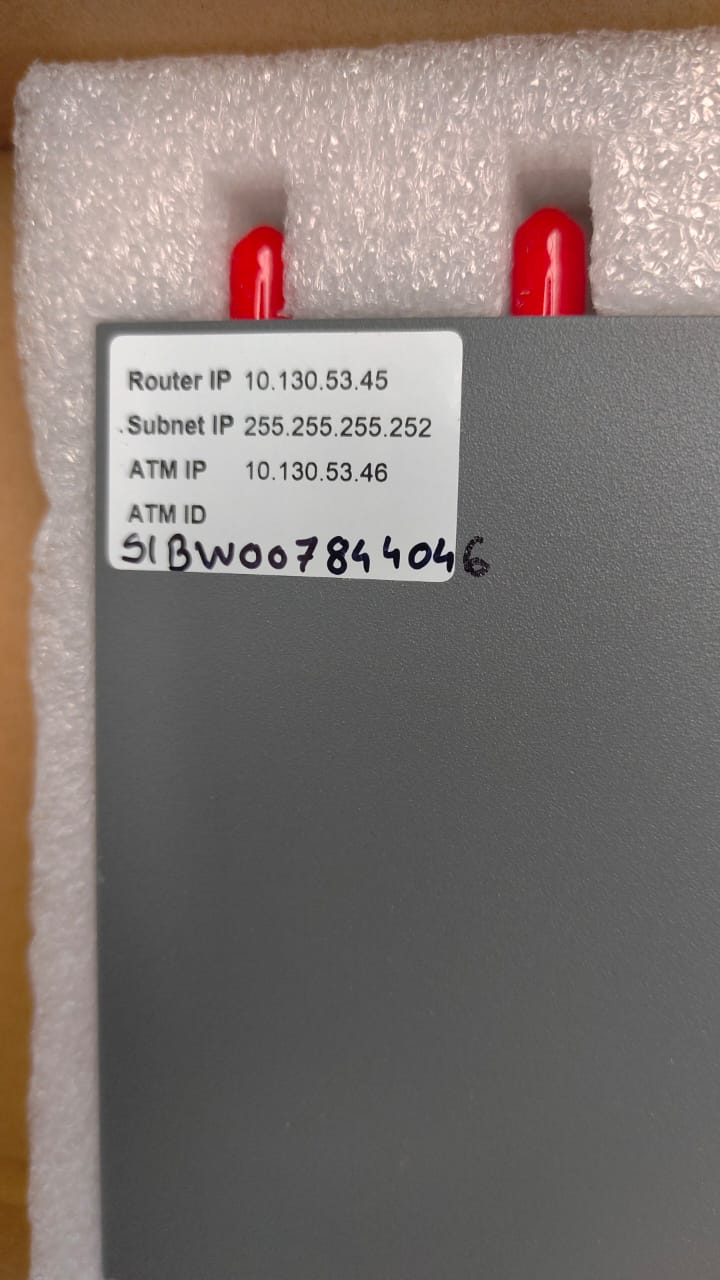 Router IP 10.130.53.45
Subnet IP 255.255.255.252
ATM IP 10.130.53.46
ATM ID
S1BW007844046